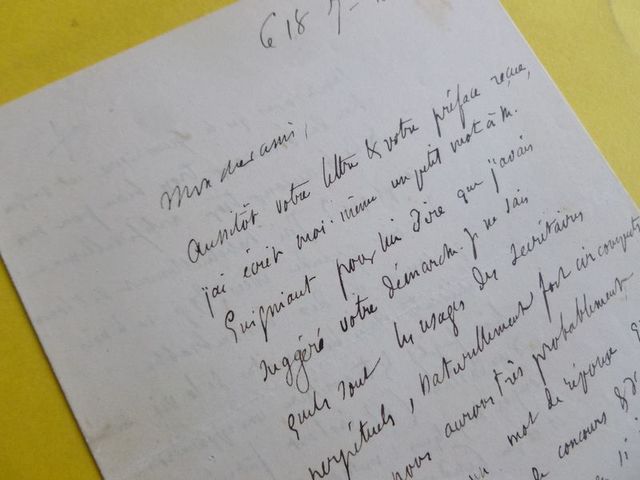 Ce 18 7
Mon cher ami,
Aussitôt votre lettre & votre préface reçue,
j'ai écrit moi-même un petit mot à M.
Guigniaut pour lui dire que j'avais
suggéré votre démarche. Je ne sais
quels sont les usages des secrétaires
perpétuels, naturellement fort circonspects
nous aurons très probablement
un mot de réponse
concours